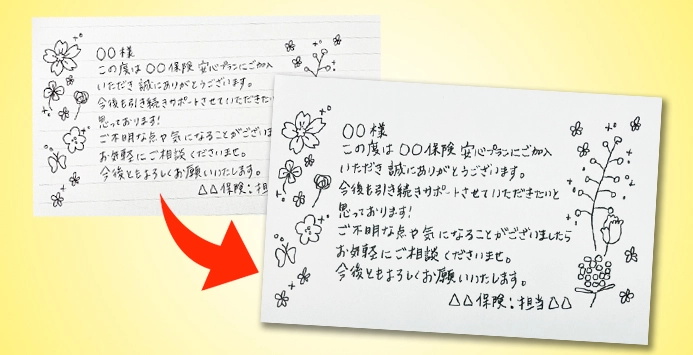 〇〇様
この度は〇〇保険 安心プランにご加入
いただき 誠にありがとうございます。
今後も引き続きサポートさせていただきたい
思っております!
ご不明な点や気になることがございま
お気軽にご相談くださいませ。
今後ともよろしくお願いいたします。
△△保険:担
〇〇様
この度は〇〇保険 安心プランにご加入
いただき 誠にありがとうございます。
今後も引き続きサポートさせていただきたいと
思っております!
ご不明な点や気になることがございましたら
お気軽にご相談くださいませ。
今後ともよろしくお願いいたします。
△△保険:担当△△